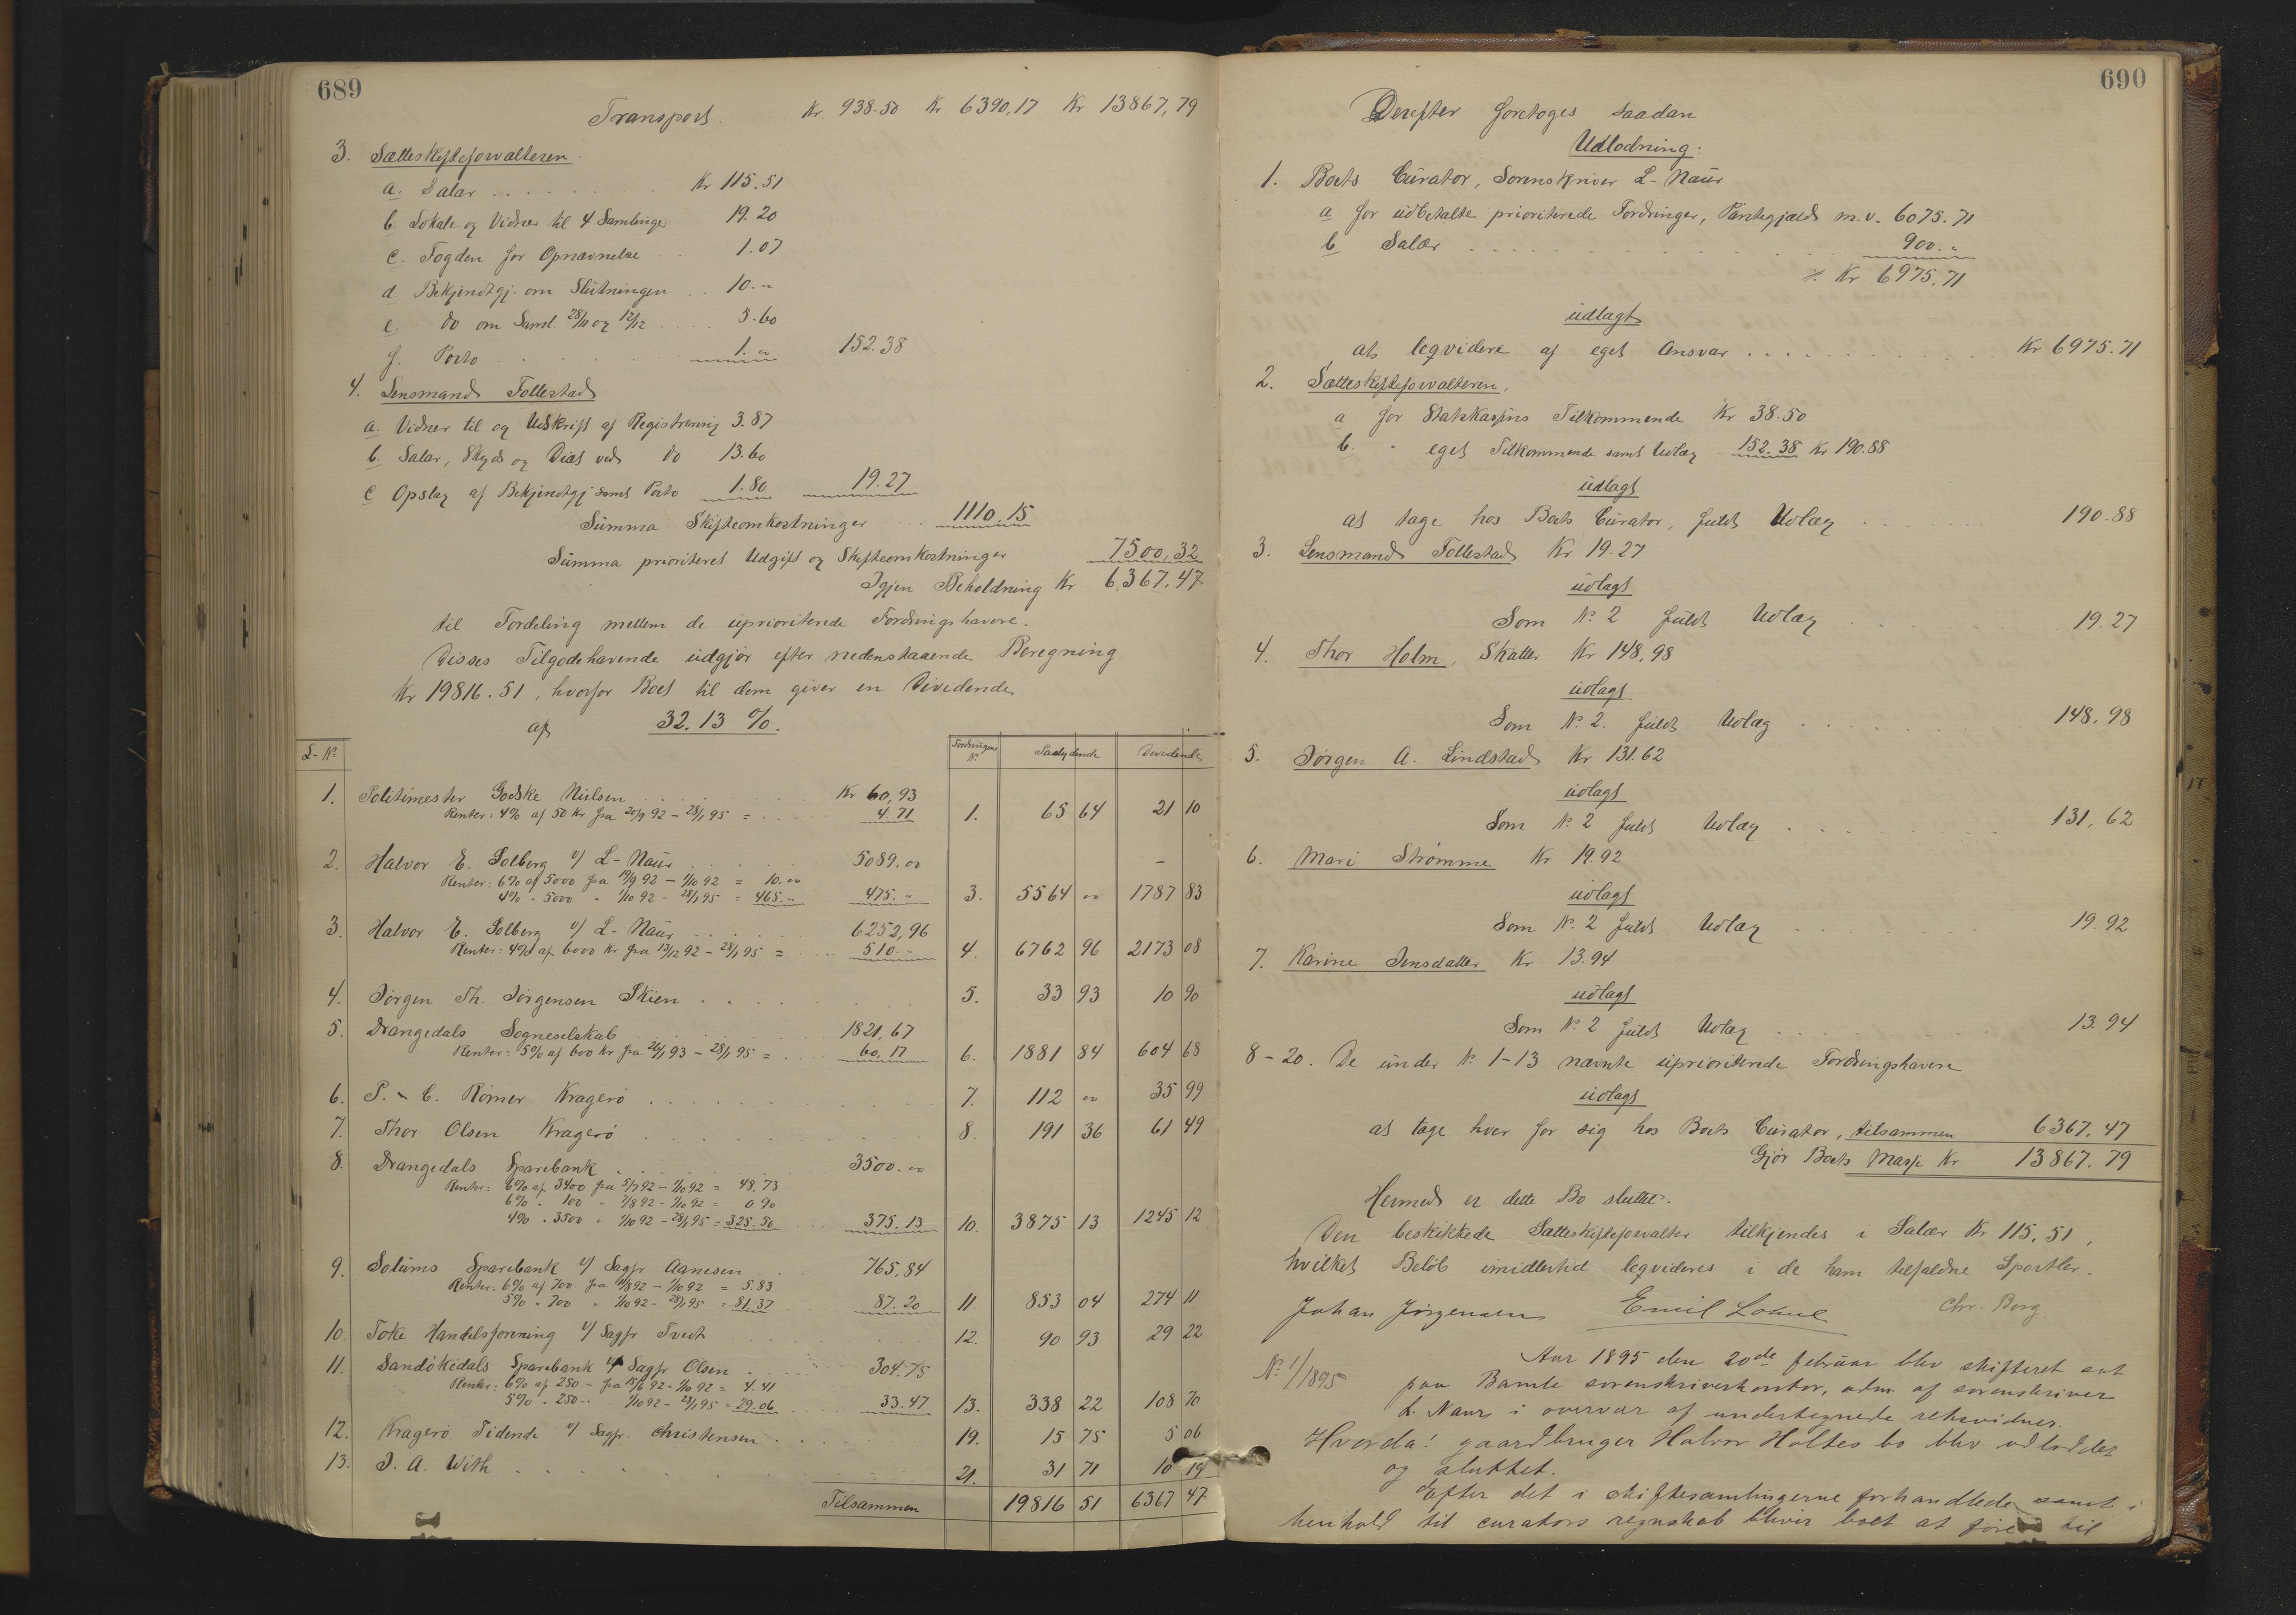 689
Transport. Kr. 938.50 Kr 6390,17 Kr 13867,79
3. Sætteskifteforvalteren.
a. Salær . . . Kr 115.51
b. Lokale og Vidner til 4 Samlinger 19.20
c. Fogden for Opnævnelse . . 1.07
d. Bekjendtgj. om Slutningen . . 10.-
e. do om Saml. 28/11 og 12/12 . . . 5.60
f. Porto . . . 1.00 152.38
4. Lensmand Tollestad
a. Vidner til og Udskrift af Registrering 3.87
b. Salær, Skyds og Diæt ved do 13.60
c Opslag af Bekjendtgj samt Porto 1.80 19.27
Summa Skifteomkostninger . . 1110.15
Summa prioriteret Udgift og Skifteomkostninger 7500,32
Igjen Beholdning Kr 6367.47
til Fordeling mellem de uprioriterede Fordringshavere.
Disses Tilgodehavende udgjør efter nedenstaaende Beregning
Kr 19816.51, hvorfor Boet til dem giver en Dividende
af 32.13 %.
L-No Fordringens No Saalydende Dividende
1. Politimester Godske Nielsen . . . Kr 60,93
Renter: 4% af 50 Kr fra 20/9 92 - 28/1 95 = . . . 4.71 1. 65 64 21 10
2. Halvor E. Solberg v/ L- Naur . . . 5089.00 -
Renter: 6% af 5000 fra 19/9 92 - 1/10 92 = 10.00
4% " 5000 " 1/10 92 - 28/1 95 = 465." 475." 3. 5564 00 1787 83
3. Halvor E. Solberg v/ L- Naur . . . 6252,96
Renter: 4% af 6000 Kr fra 13/12 92 - 28/1 95 = . . . 510.- 4. 6762 96 2173 08
4. Jørgen Th. Jørgensen Skien . . . 5. 33 93 10 90
5. Drangedals Sogneselskab . . . 1821,67
Renter: 5% af 600 Kr fra 26/1 93 - 28/1 95 = . . . 60,17 6. 1881 84 604 68
6. P. - C. Rømer Kragerø . . . 7. 112 00 35 99
7. Thor Olsen Kragerø . . . 8. 191 36 61 49
8. Drangedals Sparebank . . . 3500.00
Renter: 6% af 3400 fra 5/7 92 - 1/10 92 = 48.73
6% " 100 " 7/8 92 - 1/10 92 = 0.90
4% " 3500 " 1/10 92 - 28/1 95 = 325.50 . . . 375.13 10. 3875 13 1245 12
9. Solums Sparebank v/ Sagfr Aanesen . . . 765,84
Renter: 6% af 700 fra 11/8 92 - 1/10 92 = 5.83
5% " 700 " 1/10 92 - 28/1 95 = 81.37 . . . 87.20 11. 853 04 274 11
10. Toke Handelsforening v/ Sagfr Tvedt . . . 12. 90 93 29 22
11. Sandøkedals Sparebank v/ Sagfr Olsen . . . 304.75
Renter: 6% af 250.- fra 15/6 92 - 1/10 92 = 4.41
5% " 250.- 1/10 92 - 28/1 95 = 29.06 . . . 33.47 13. 338 22 108 70
12. Kragerø Tidende v/ Sagfr. Christensen . . . 19. 15 75 5 06
13. J. A. With . . . 21. 31 71 10 19
Tilsammen 19816 51 6367 47
690
Derefter foretoges saadan
Udlodning:
1. Boets Curator, Sorenskriver L- Naur
a for udbetalte prioriterede Fordringer, Pantegjæld m.v. 6075.71
b Salær . . . 900."
Kr 6975.71
udlagt
at leqvidere af eget Ansvar . . . Kr 6975.71
2. Sætteskifteforvalteren,
a for Statskassens Tilkommende Kr 38.50
b. " eget Tilkommende samt Udlæg . 152.38 Kr 190.88
udlagt
at tage hos Boets Curator, fuldt Udlæg . . . 190.88
3. Lensmand Tollestad Kr 19.27
udlagt
Som No 2 fuldt Udlæg . . . 19.27
4. Thor Holm, Skatter Kr 148,98
udlagt
Som No 2. fuldt Udlæg . . . 148,98
5. Jørgen A. Lindstad Kr 131.62
udlagt
Som No 2 fuldt Udlæg . . . 131,62
6. Mari Strømme Kr 19.92
udlagt
Som No 2 fuldt Udlæg . . . 19.92
7. Karine Jensdatter Kr 13.94
udlagt
Som No 2 fuldt Udlæg . . . 13.94
8-20. De under No 1-13 nævnte uprioriterede Fordringshavere
udlagt
at tage hver for sig hos Boets Curator, tilsammen 6367.47
Gjør Boets Masse Kr 13867.79
Hermed er dette Bo sluttet.
Den beskikkede Sætteskifteforvalter tilkjendes i Salær Kr 115,51,
hvilket Beløb imidlertid leqvideres i de ham tilfaldne Sportler.
Johan Jørgensen Emil Chr. Berg
No 1/1895 Aar 1895 den 20de februar blev skifteret sat
paa Bamle sorenskriverkontor, adm. af sorenskriver
L. Naur i overvær af undertegnede retsvidner.
Hvorda! gaardbruger Halvor Holtes bo blev udloddet
og sluttet.
Efter det i skiftesamlingerne forhandlede samt i
henhold til curators regnskab bliver boet at føre til